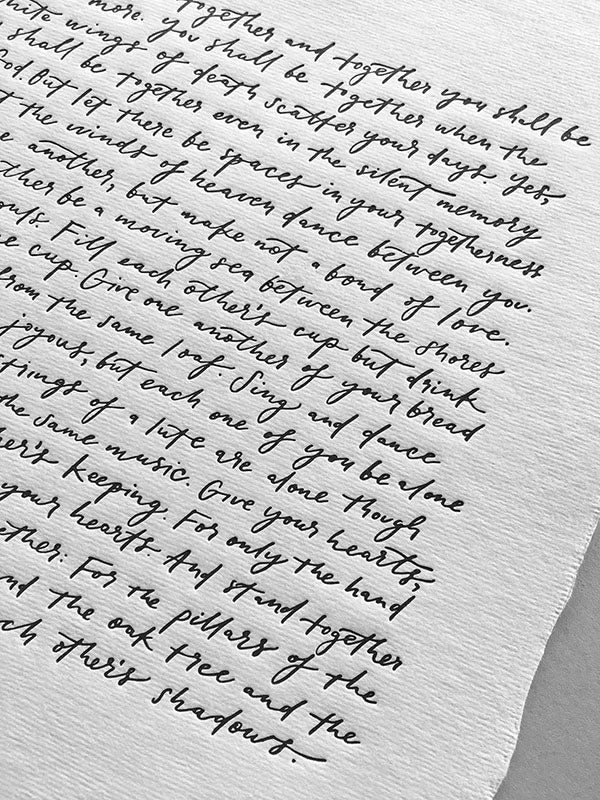 together and together you shall be
more. You shall be together when the
white wings of death scatter your days. Yes,
shall be together even in the silent memory
God. But let there be spaces in your togetherness
the winds of heaven dance between you.
another, but make not a bond of love.
be a moving sea between the shores
souls. Fill each other's cup but drink
cup. Give one another of your bread
from the same loaf. Sing and dance
joyous, but each one of you be alone
strings of a lute are alone though
the same music. Give your hearts,
keeping. For only the hand
your hearts. And stand together
together: For the pillars of the
and the oak tree and the
other's shadows.